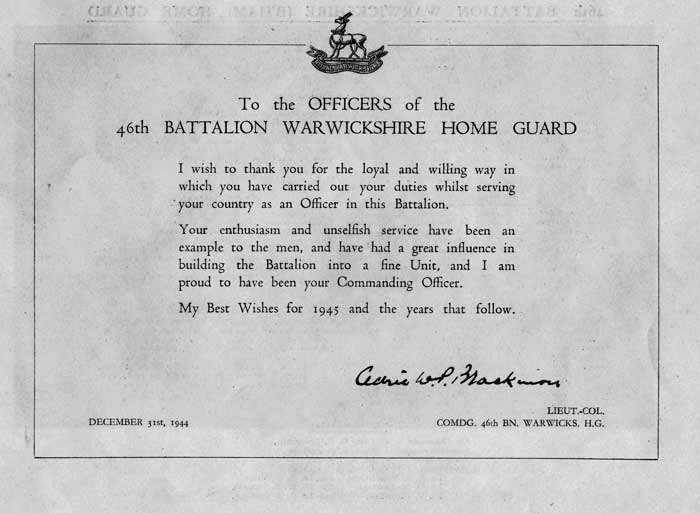 To the OFFICERS of the
46th BATTALION WARWICKSHIRE HOME GUARD
I wish to thank you for the loyal and willing way in
which you have carried out your duties whilst serving
your country as an Officer in this Battalion.
Your enthusiasm and unselfish service have been an
example to the men, and have had a great influence in
building the Battalion into a fine Unit, and I am
proud to have been your Commanding Officer.
My Best Wishes for 1945 and the years that follow.
LIEUT.-COL.
DECEMBER 31st, 1944
COMDG. 46th BN. WARWICKS. H.G.